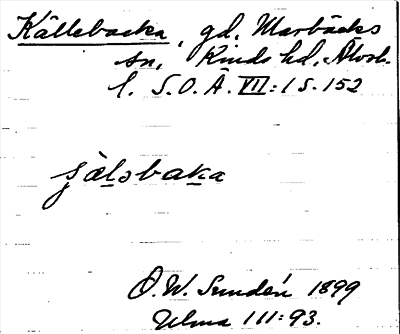 Källebacka, gd, Marbäcks
sn, Kinds hd, Älvsb.
l. S.O.Ä VII:1 S.152
O.W. Sundén 1899
Ulma 111:93.